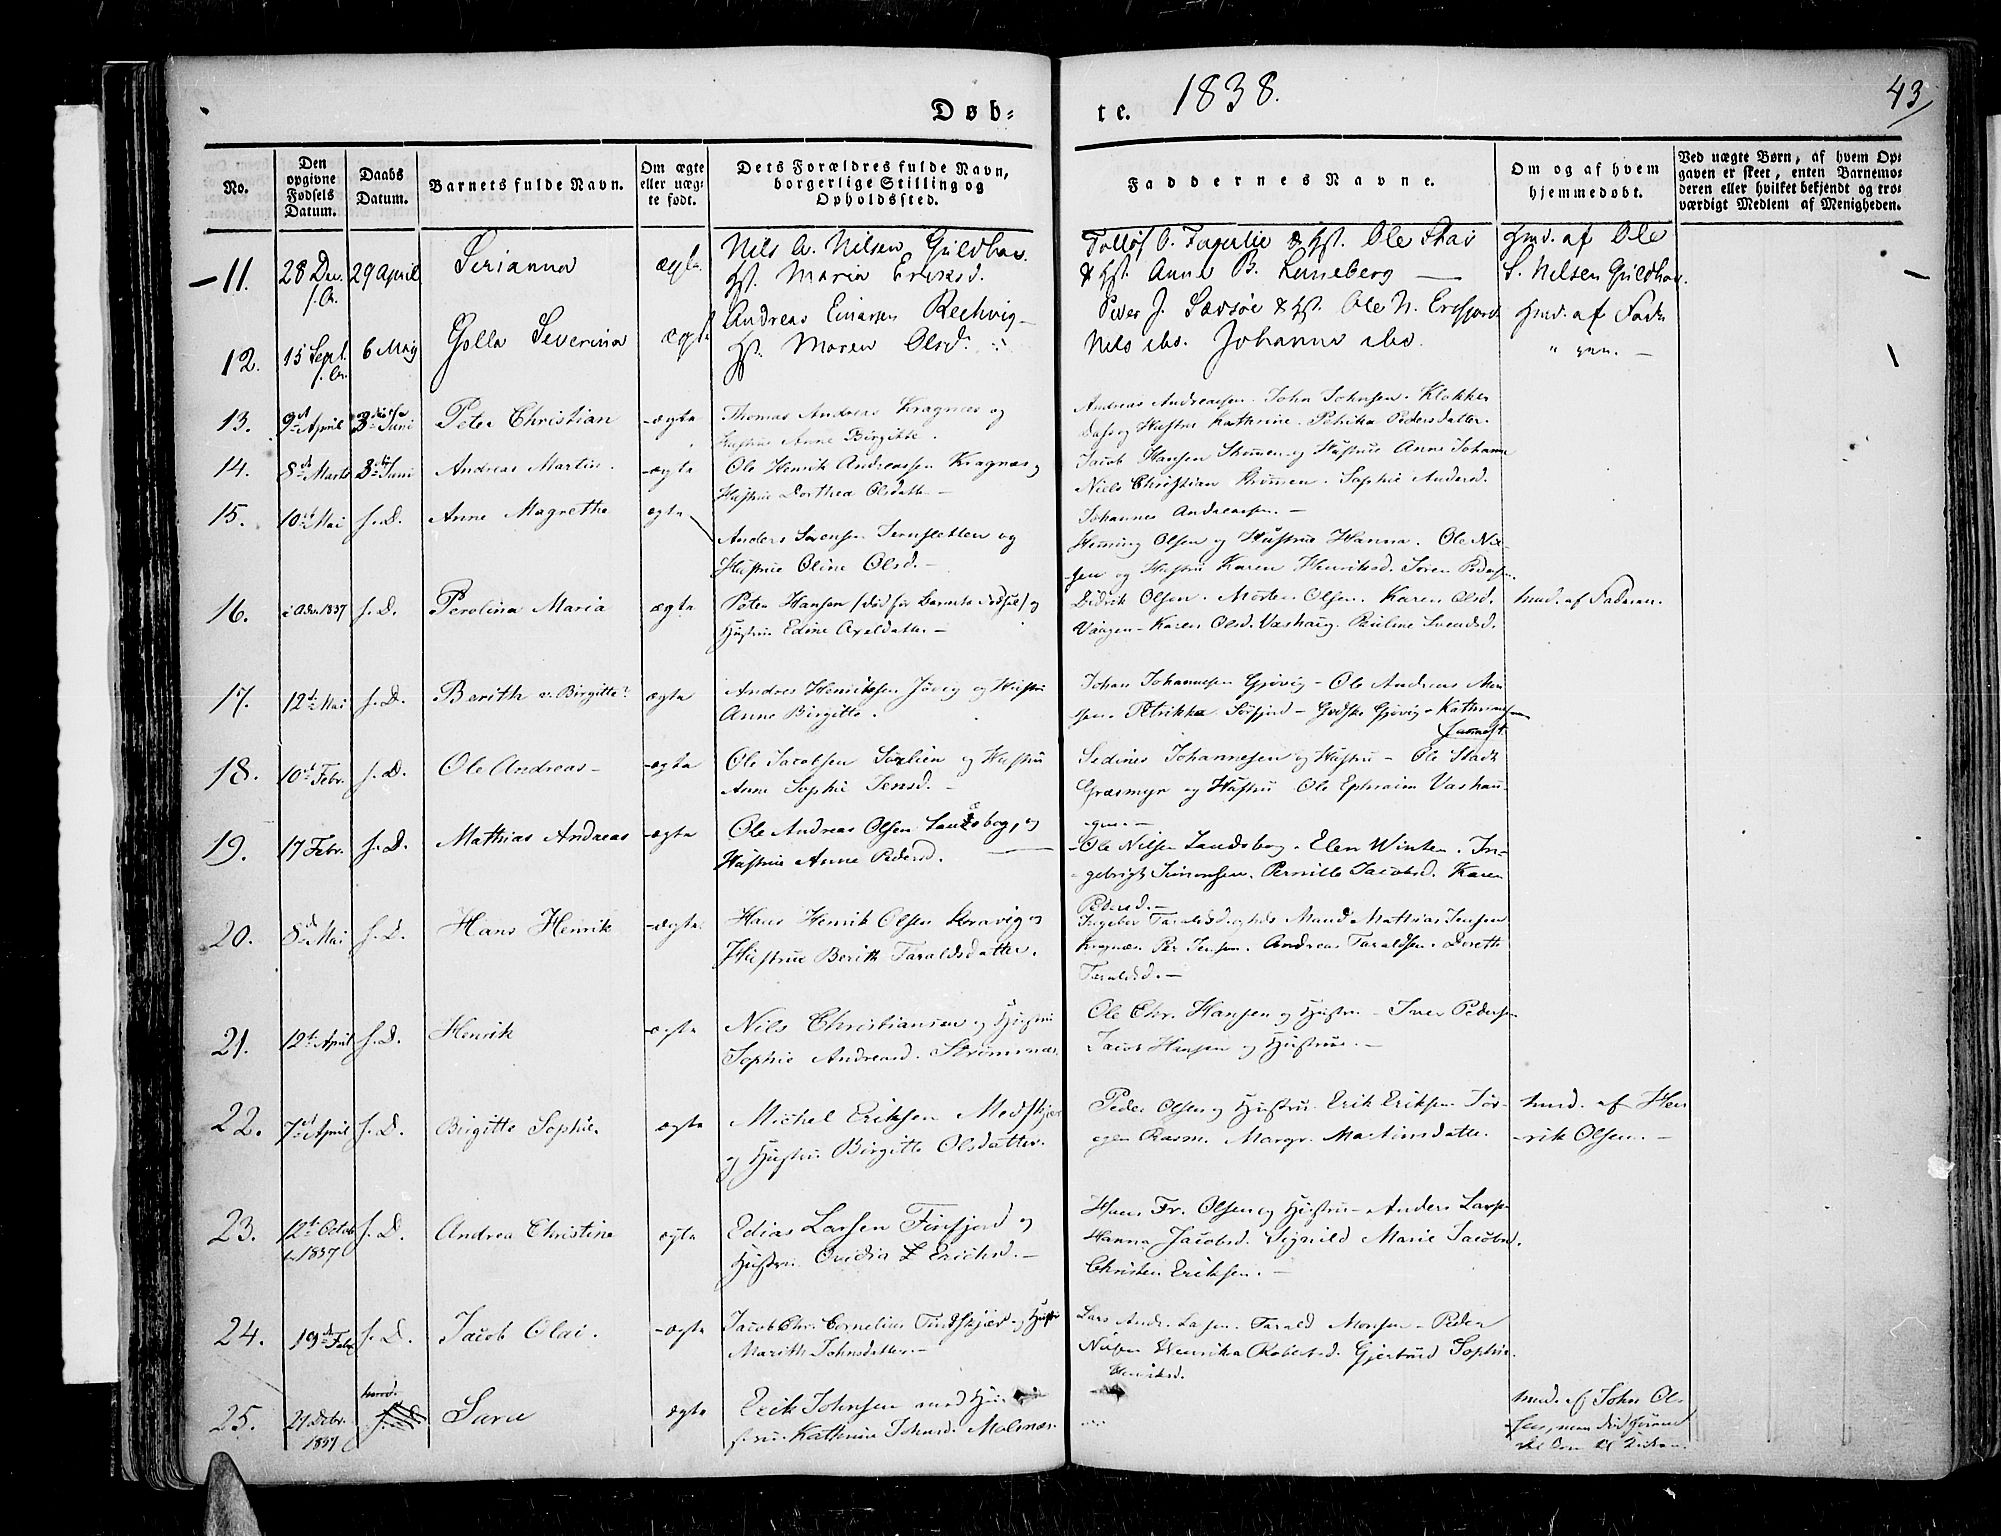 Døb-
te. 1838.
43
No.
Den opgivne Fødsels Datum.
Daabs Datum.
Barnets fulde Navn.
Om ægte eller uægte født.
Dets Forældres fulde Navn, borgerlige Stilling og Opholdssted.
Faddernes Navne.
Om og af hvem hjemmedøbt.
Ved uægte Børn, af hvem Opgaven er skeet, enten Barnemoderen eller hvilket bekjendt og troværdigt Medlem af Menigheden.
11. 28 Dec. f. A. 29 April Serianna ægte
Nils A. Nilsen Guldhav.
Hst. Maria Ericksd.
Tollöf O. Fagerlie & Hst. Ole
& Hst. Anne B. Luneberg —
hmd. af Ole
S. Nilsen Guldhav.
12. 15 Sept. f. A. 6 Maij Golla Severina ægte
Andreas Einarsen Rechvig —
Hst. Maren Olsd.
Peder J. Sævsöe & Hst. Ole N. Ersfjord
Nils ibd. Johanna ibd.
hmd. af Fade
" ren. —
13. 9de April 3die Juni Peter Christian ægte
Thomas Anders Kragnæs og
Hustrue Anne Birgitte.
Andreas Andreassen. John Johnsen. Klokker
og Hustru Kathrine. Petrika Pedersdatter.
14. 8de Marts 3die Juni Andreas Martin. ægte
Ole Henrik Andreassen Kragnæs og
Hustrue Dorthea Olsdatter —
Jacob Hansen og Hustrue Anne Johanna
Niels Christian. Sophie Andersd.
Johannes Andreassen. —
15. 10de Mai s. D. Anne Magrethe ægte
Anders Sørensen og
Hustrue Oline Olsd. —
Heming Olsen og Hustrue Hanna. Ole Nil-
-sen og Hustru Karen Henriksd. Søren Pedersen.
16. 1837 s. D. Perolina Maria ægte
Peter Hansen (død før Barnets Fødsel) og
Hustrue Edine Axeldatter —
Didrik Olsen. Morten Olsen. Karen Olsd.
Vaagen — Karen Olsd. Vashaug. Pauline Svendsd.
hmd. af Faderen.
17. 12te Mai s. D. Berith v. Birgitte? ægte
Andres Henriksen Jøvig og Hustru
Anne Birgitte.
Johan Johannesen Gjøvig — Ole Andreas
Petrikka Sørfjord — Gjøvig —
18. 10de Febr. s. D. Ole Andreas — ægte
Ole Jacobsen og Hustru
Anne Sophie Jensd. —
Sedines Johannesen og Hustru — Ole
Græsmyr og Hustru Ole Ephraim Vashau-
-gen. —
19. 17 Febr. s. D. Mathias Andreas ægte
Ole Andreas Olsen og
Hustrue Anne Pedersd.
Ole Nilsen Landsbog. Elen Winter. In-
gebrigt Simonsen. Pernille Jacobsd. Karen
Pedersd. —
20. 8de Mai s. D. Hans Henrik ægte
Hans Henrik Olsen og
Hustrue Berith Taraldsdatter.
Ingebor Taraldsd. og Mand Mathias Jensen
Kragnæs. Per Jensen. Andreas Taraldsen. Dorethe
Taraldsd. —
21. 12te April s. D. Henrik ægte
Nils Christiansen og Hustrue
Sophie Andreasd. Strømmen.
Ole Chr. Hansen og Hustru — Iver Pedersen
Jacob Hansen og Hustrue. —
22. 7de April s. D. Birgitte Sophie. ægte
Michel Eriksen
og Hustru Birgitte Olsdatter.
Peder Olsen og Hustru. Erik Eriksen. Jør-
-gen Rasm. Margr. Martinsdatter.
hmd. af Hen
-rik Olsen. —
23. 12te Octob. 1837 s. D. Andrea Christine ægte
Edias Larsen Finfjord og
Hustru Ovidia Ericksd. —
Hans Fr. Olsen og Hustru — Anders Lars-
Hanna Jacobsd. Signild Marie Jacobsd.
Christen Eriksen. —
24. 19de Febr. s. D. Jacob Olai. ægte
Jacob Chr. Cornelius og Hustru
Marith Johnsdatter. —
Lars Andr. Larsen. Tarald Monsen — Peder
Nilsen Henrika Robertsd. Gjertrud Sophie
Henriksd.
25. 1837 Sara ægte
Erik Johnsen med Hu-
-stru Kathrine Johnsd. Malenæs.
hmd. af John Ol-
sen, men død førend